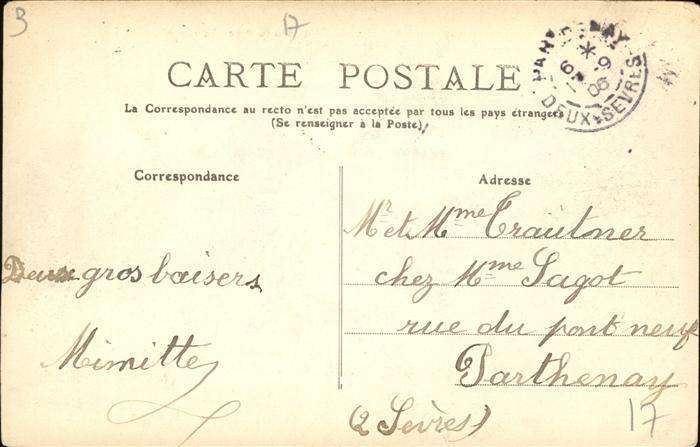 B
17
CARTE POSTALE
La Correspondance au recto n'est pas acceptée par tous les pays étrangers
(Se renseigner à la Poste)
PARTHENAY
DEUX-SEVRES
Correspondance
Adresse
Deux gros baisers
Mimitte
Mr et Mme Trautner
chez Mme Sagot
rue du pont neuf
Parthenay
(2 Sèvres)
17